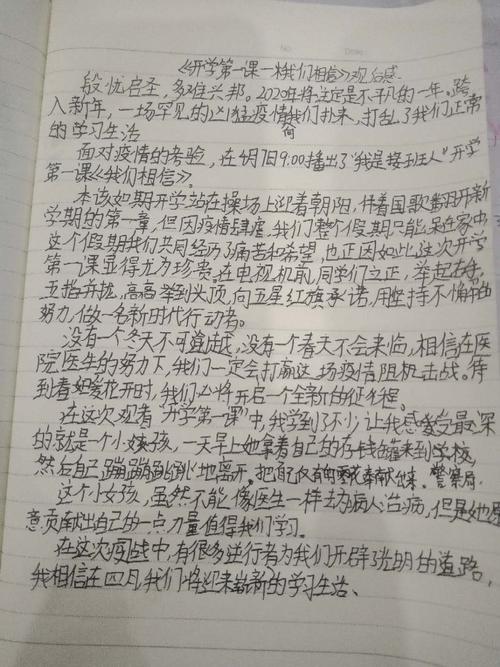 《开学第一课—我们相信》观后感
殷忧启圣，多难兴邦。2020年将注定是不平凡的一年。跨
入新年，一场罕见的凶猛疫情向我们扑来，打乱了我们正常
的学习生活
面对疫情的考验，在4月7日9:00播出了"我是接班人"开学
第一课《我们相信》。
本该如期开学站在操场上迎着朝阳，伴着国歌翻开新
学期的第一章，但因疫情肆虐，我们整个假期只能呆在家中
这个假期我们共同经历了痛苦和希望，也正因如此这次开学
第一课显得尤为珍贵。在电视机前，同学们立正，举起右手，
五指并拢，高高举到头顶，向五星红旗承诺，用坚持不懈的
努力，做一名新时代行动者。
没有一个冬天不可逾越，没有一个春天不会来临，相信在医
院医生的努力下，我们一定会打赢这场疫情阻击战。等
到春暖花开时，我们必将开启一个全新的征程。
在这次观看"开学第一课"中，我学到了不少，让我感受最深
的就是一个小女孩，一天早上她拿着自己的存钱罐来到学校，
然后自己蹦蹦跳跳地离开。把仅有的零花奉献出来。警察局
这个小女孩，虽然不能像医生一样去为病人治病，但是她愿
意贡献出自己的一点力量值得我们学习。
在这次阻战中，有很多逆行者为我们开辟光明的道路，
我相信在四月我们将迎来崭新的学习生活、